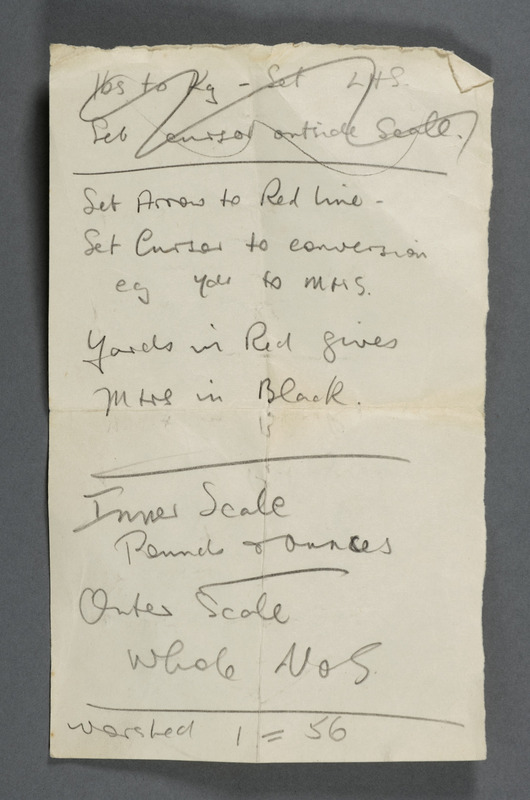 lbs to Kg - Set LHS.
Set cursor outside Scale.
Set Arrow to Red line -
Set Cursor to conversion
eg yds to MTRS.
Yards in Red gives
MTRS in Black.
Inner Scale
Pounds & ounces
Outer Scale
Whole NoS
worsted 1 = 56